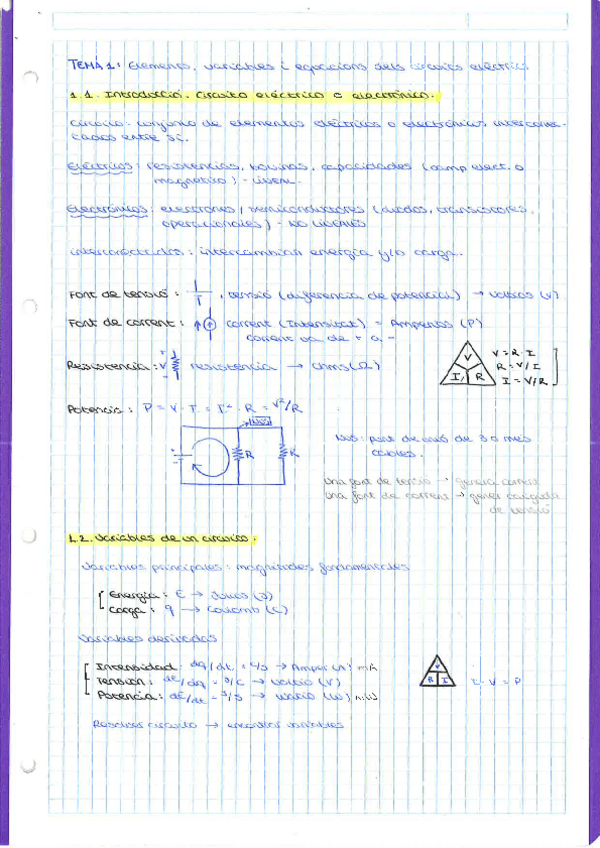 TEMA 1: Elements, variables i equacions dels circuits elèctrics
1.1. Introducció. Circuito eléctrico o electrónico.
Circuito: conjunto de elementos eléctricos o electrónicos interconec-
tados entre sí.
Eléctricos: resistencias, bobinas, capacidades (camp elect. o
magnético) - LINEAL.
Electrónicos: electrones / semiconductores (diodos, transistores,
operacionales) - NO LINEALES
interconectados: intercambian energía y/o carga.
Font de tensió: , tensió (diferencia de potencial) → voltios (V)
Font de corrent: corrent (Intensitat) = Amperios (A)
corrent va de + a -
Resistencia: + V - resistencia → ohms (Ω)
V I R
V = R · I
R = V/I
I = V/R
Potencia: P = V · I = I² · R = V²/R
R R
NUS: punt de unió de 3 o més
cables.
Una font de tensió → genera corrent
Una font de corrent → gener caiguda
de tensió
1.2. Variables de un circuito.
Variables principales: magnitudes fundamentales
Energía: E → Joules (J)
Carga: q → Coulomb (C)
Variables derivadas
Intensidad: dq/dt = C/s → Amper (A) mA
Tensión: dE/dq = J/C → voltio (V)
Potencia: dE/dt = J/s → watio (W) mW
V R I
I · V = P
Resolver circuito → encontrar variables